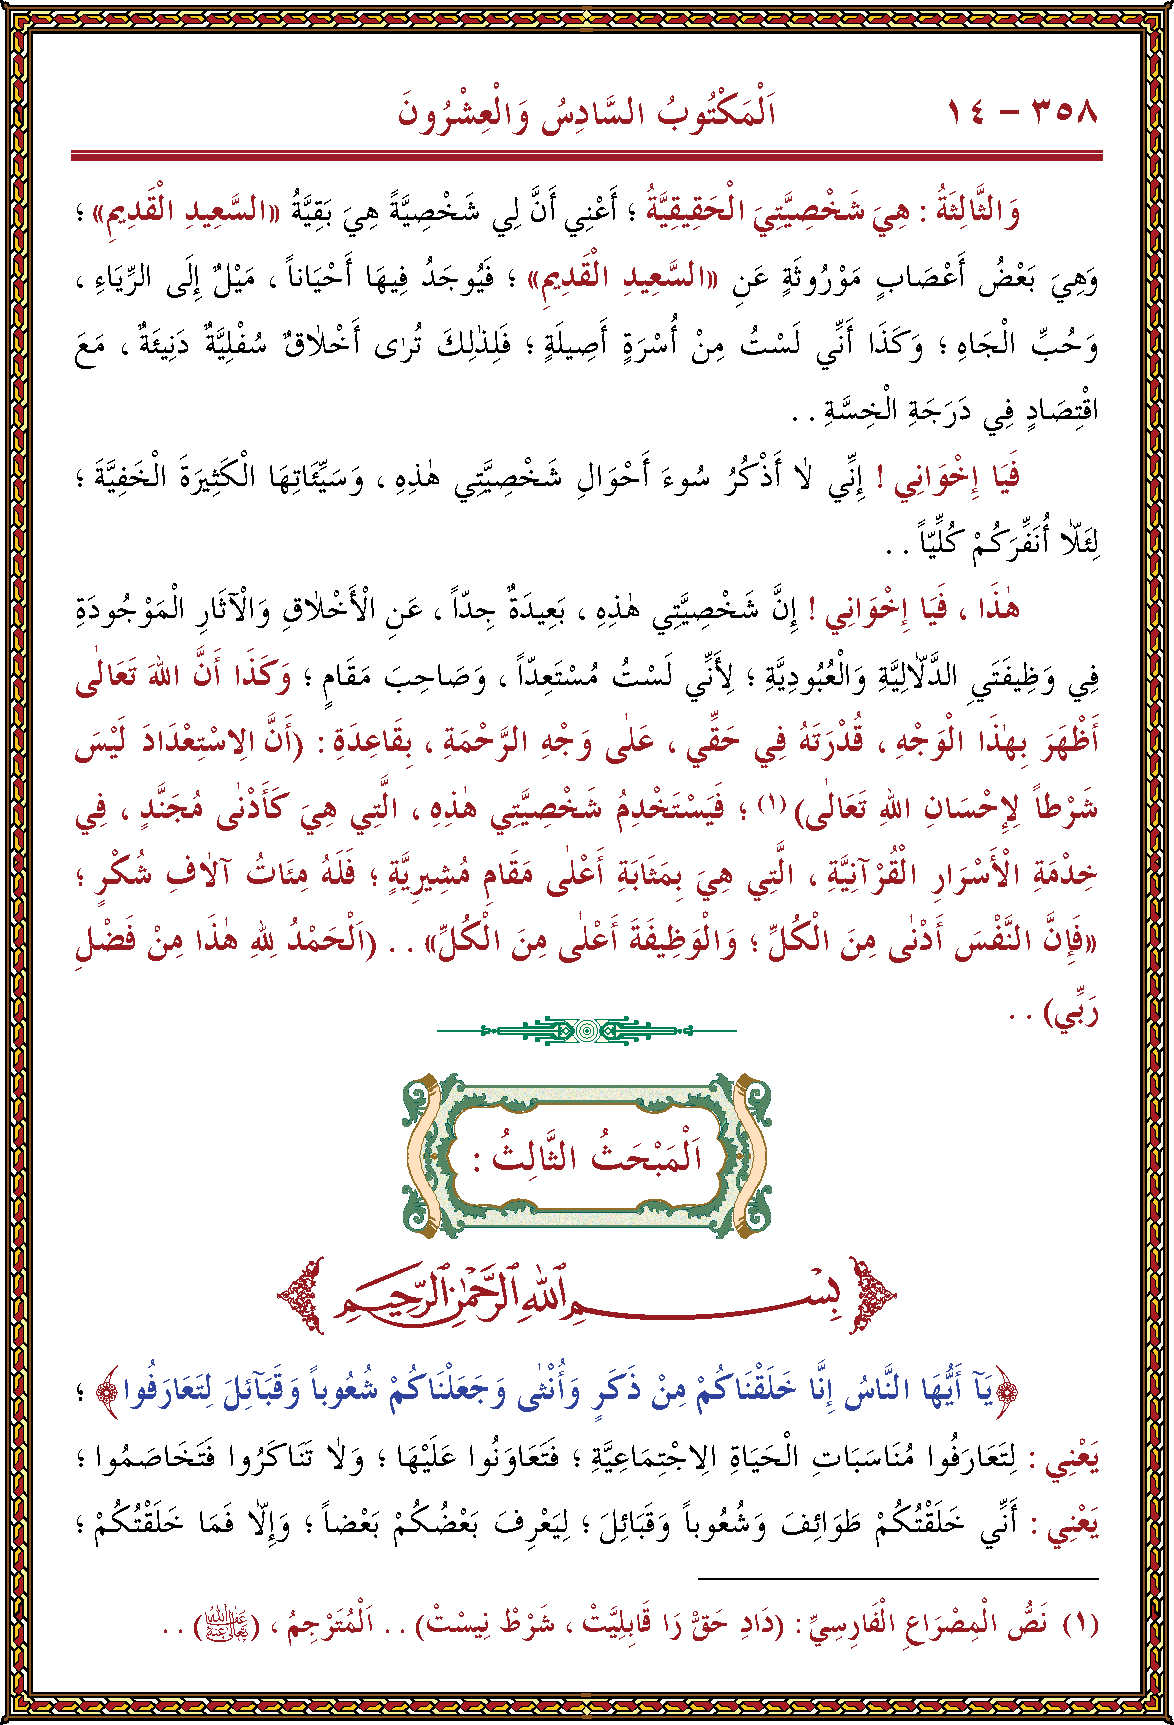 ٣٥٨ – ١٤ اَلْمَكْتُوبُ السَّادِسُ وَالْعِشْرُونَ
وَالثَّالِثَةُ : هِيَ شَخْصِيَّتِيَ الْحَقِيقِيَّةُ ؛ أَعْنِي أَنَّ لِي شَخْصِيَّةً هِيَ بَقِيَّةُ «السَّعِيدِ الْقَدِيمِ» ؛
وَهِيَ بَعْضُ أَعْصَابٍ مَوْرُوثَةٍ عَنِ «السَّعِيدِ الْقَدِيمِ» ؛ فَيُوجَدُ فِيهَا أَحْيَاناً ، مَيْلٌ إِلَى الرِّيَاءِ ،
وَحُبِّ الْجَاهِ ؛ وَكَذَا أَنِّي لَسْتُ مِنْ أُسْرَةٍ أَصِيلَةٍ ؛ فَلِذٰلِكَ تُرٰى أَخْلَاقٌ سُفْلِيَّةٌ دَنِيئَةٌ ، مَعَ
اقْتِصَادٍ فِي دَرَجَةِ الْخِسَّةِ . .
فَيَا إِخْوَانِي ! إِنِّي لَا أَذْكُرُ سُوءَ أَحْوَالِ شَخْصِيَّتِي هٰذِهِ ، وَسَيِّئَاتِهَا الْكَثِيرَةَ الْخَفِيَّةَ ؛
لِئَلَّا أُنَفِّرَكُمْ كُلِّيّاً . .
هٰذَا ، فَيَا إِخْوَانِي ! إِنَّ شَخْصِيَّتِي هٰذِهِ ، بَعِيدَةٌ جِدّاً ، عَنِ الْأَخْلَاقِ وَالْآثَارِ الْمَوْجُودَةِ
فِي وَظِيفَتَيِ الدَّلَّالِيَّةِ وَالْعُبُودِيَّةِ ؛ لِأَنِّي لَسْتُ مُسْتَعِدّاً ، وَصَاحِبَ مَقَامٍ ؛ وَكَذَا أَنَّ اللهَ تَعَالٰى
أَظْهَرَ بِهٰذَا الْوَجْهِ ، قُدْرَتَهُ فِي حَقِّي ، عَلٰى وَجْهِ الرَّحْمَةِ ، بِقَاعِدَةِ : (أَنَّ الِاسْتِعْدَادَ لَيْسَ
شَرْطاً لِإِحْسَانِ اللهِ تَعَالٰى) (١) ؛ فَيَسْتَخْدِمُ شَخْصِيَّتِي هٰذِهِ ، الَّتِي هِيَ كَأَدْنٰى مُجَنَّدٍ ، فِي
خِدْمَةِ الْأَسْرَارِ الْقُرْآنِيَّةِ ، الَّتِي هِيَ بِمَثَابَةِ أَعْلٰى مَقَامِ مُشِيرِيَّةٍ ؛ فَلَهُ مِئَاتُ آلَافِ شُكْرٍ ؛
«فَإِنَّ النَّفْسَ أَدْنٰى مِنَ الْكُلِّ ؛ وَالْوَظِيفَةَ أَعْلٰى مِنَ الْكُلِّ» . . (اَلْحَمْدُ لِلهِ هٰذَا مِنْ فَضْلِ
رَبِّي) . .
اَلْمَبْحَثُ الثَّالِثُ :
بِسْمِ اللهِ الرَّحْمٰنِ الرَّحِيمِ
﴿يَآ أَيُّهَا النَّاسُ إِنَّا خَلَقْنَاكُمْ مِنْ ذَكَرٍ وَأُنْثٰى وَجَعَلْنَاكُمْ شُعُوباً وَقَبَآئِلَ لِتَعَارَفُوا﴾ ؛
يَعْنِي : لِتَعَارَفُوا مُنَاسَبَاتِ الْحَيَاةِ الِاجْتِمَاعِيَّةِ ؛ فَتَعَاوَنُوا عَلَيْهَا ؛ وَلَا تَنَاكَرُوا فَتَخَاصَمُوا ؛
يَعْنِي : أَنِّي خَلَقْتُكُمْ طَوَائِفَ وَشُعُوباً وَقَبَائِلَ ؛ لِيَعْرِفَ بَعْضُكُمْ بَعْضاً ؛ وَإِلَّا فَمَا خَلَقْتُكُمْ ؛
(١) نَصُّ الْمِصْرَاعِ الْفَارِسِيِّ : (دَادِ حَقّْ رَا قَابِلِيَّتْ ، شَرْطْ نِيسْتْ) . . اَلْمُتَرْجِمُ ، () . .